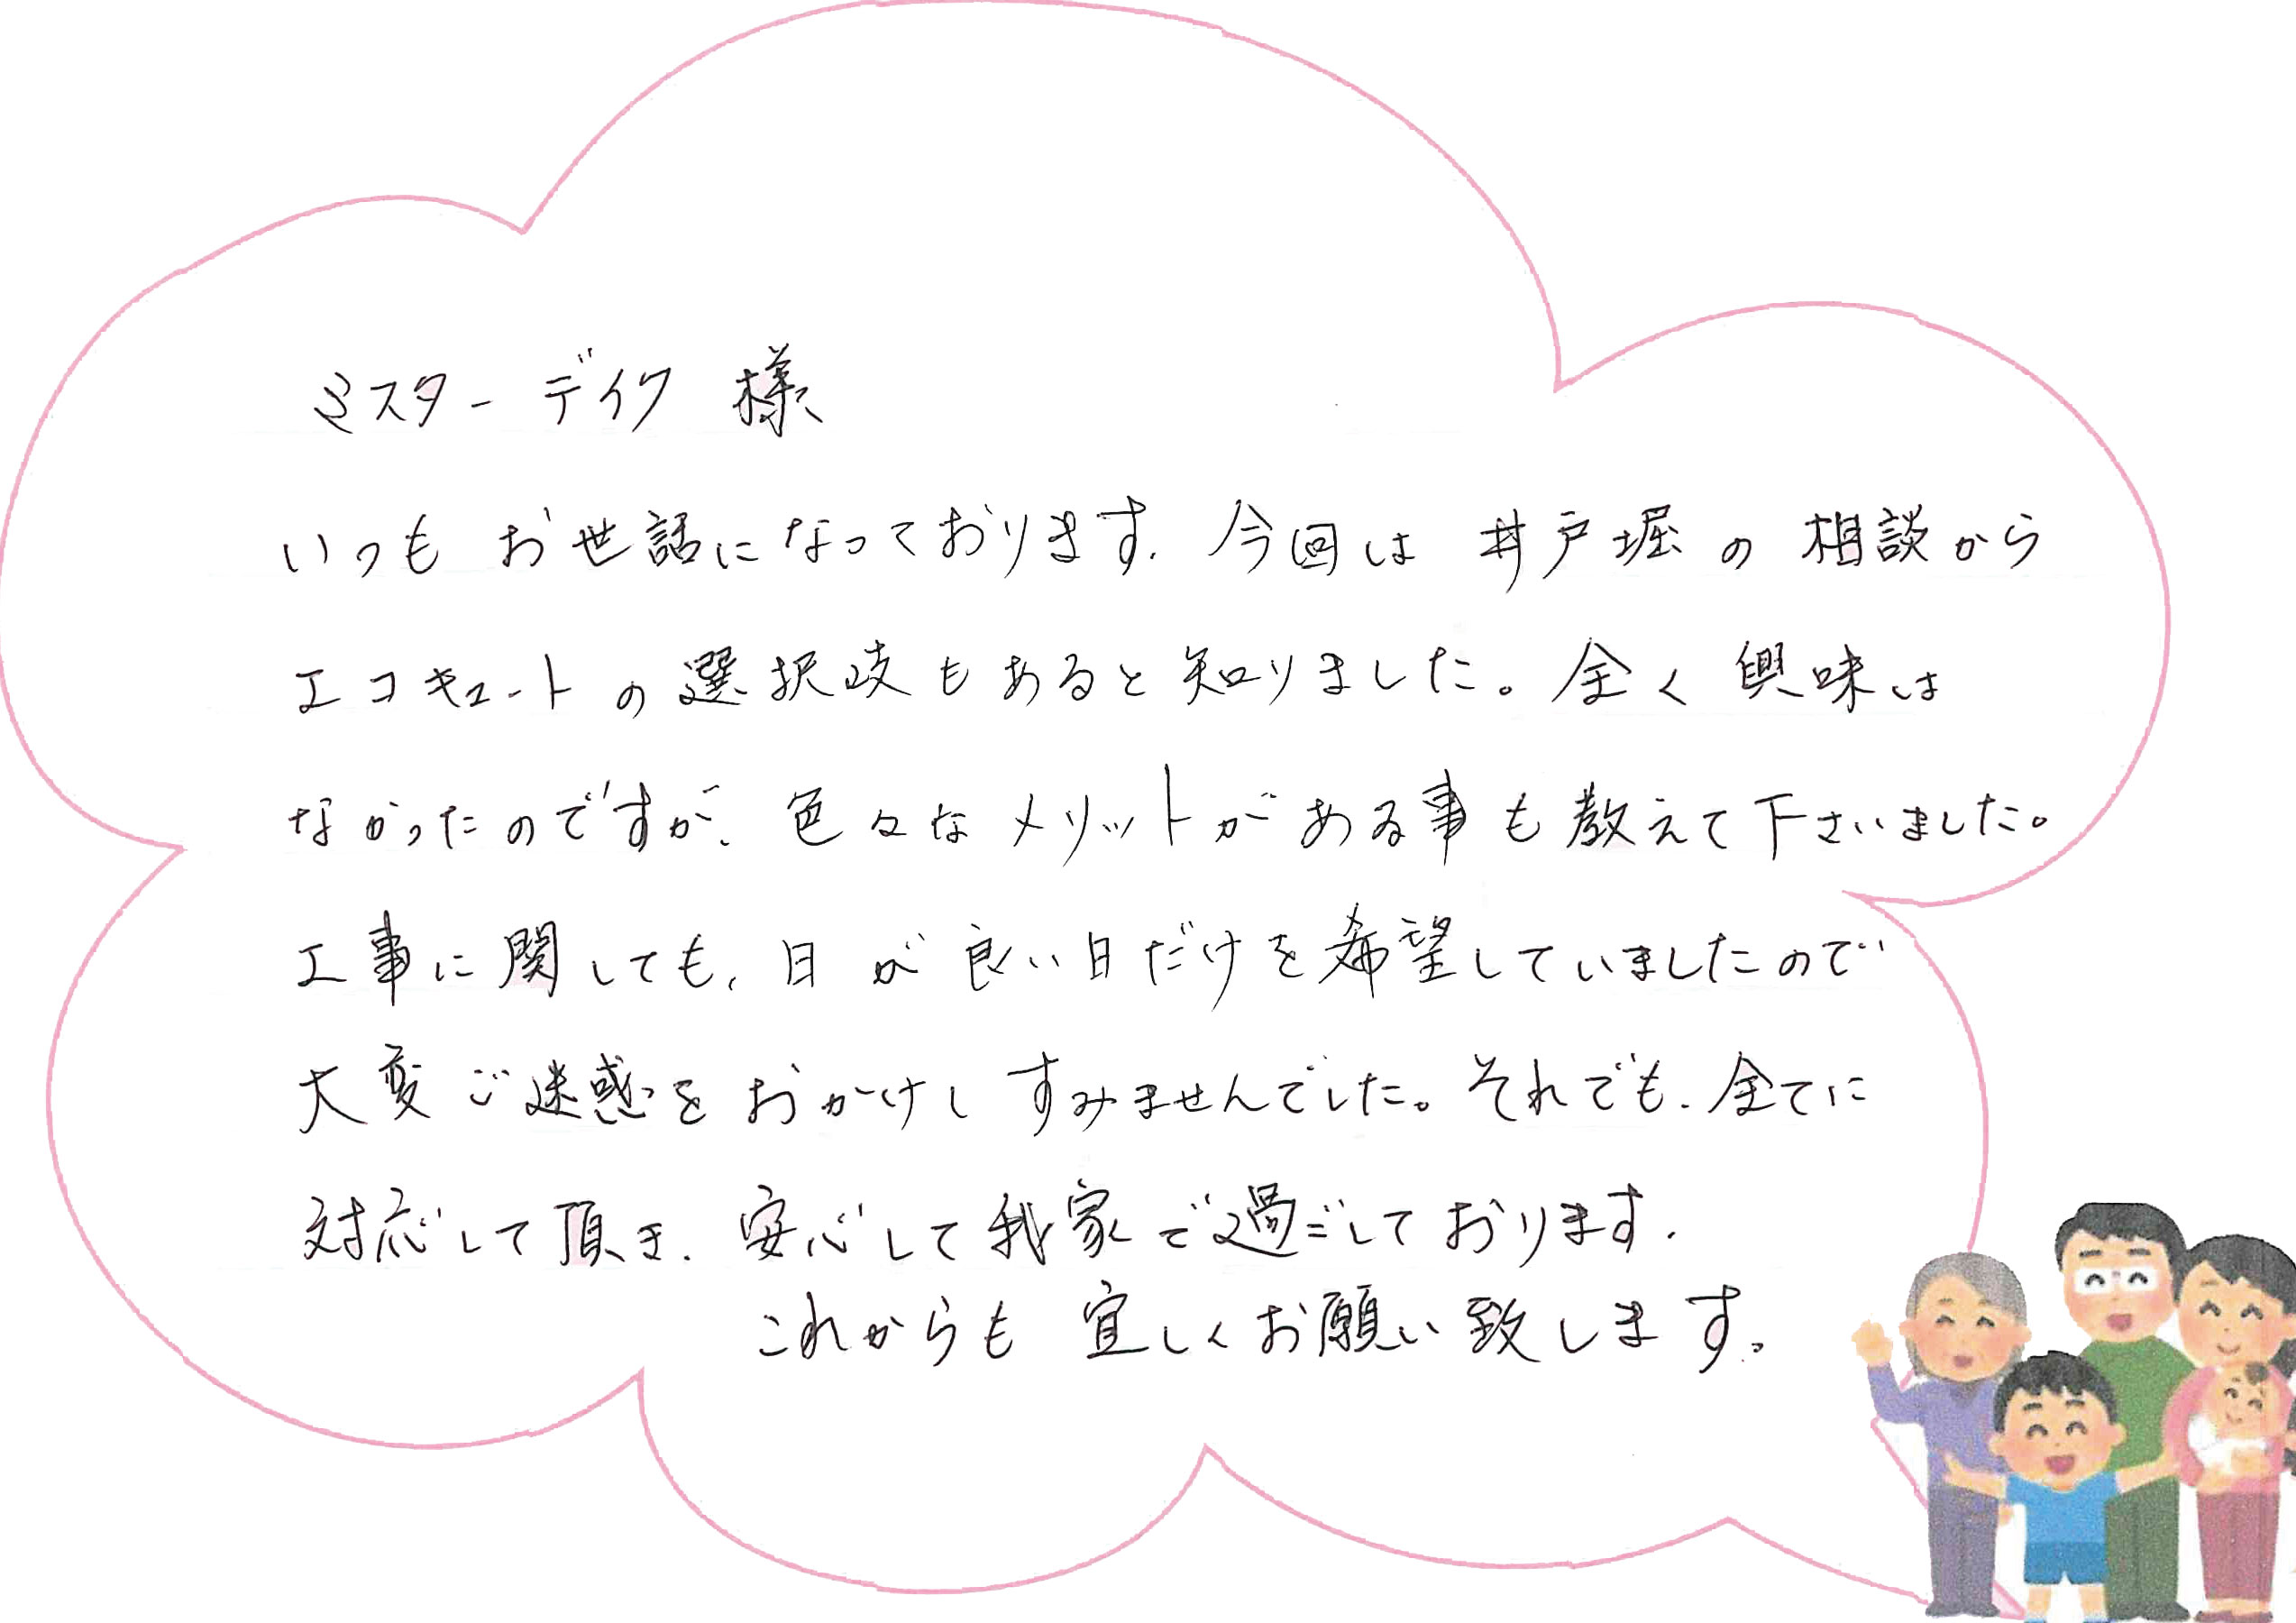 ミスターデイク 様
いつも お世話になっております. 今回は 井戸堀 の 相談から
エコキュートの選択岐もあると知りました。全く興味は
なかったのですが、色々なメリットがある事も教えて下さいました。
工事に関しても、日が良い日だけを希望していましたので
大変ご迷惑をおかけし すみませんでした。それでも、全てに
対応して頂き、安心して我家で過ごしております.
これからも 宜しくお願い致します。